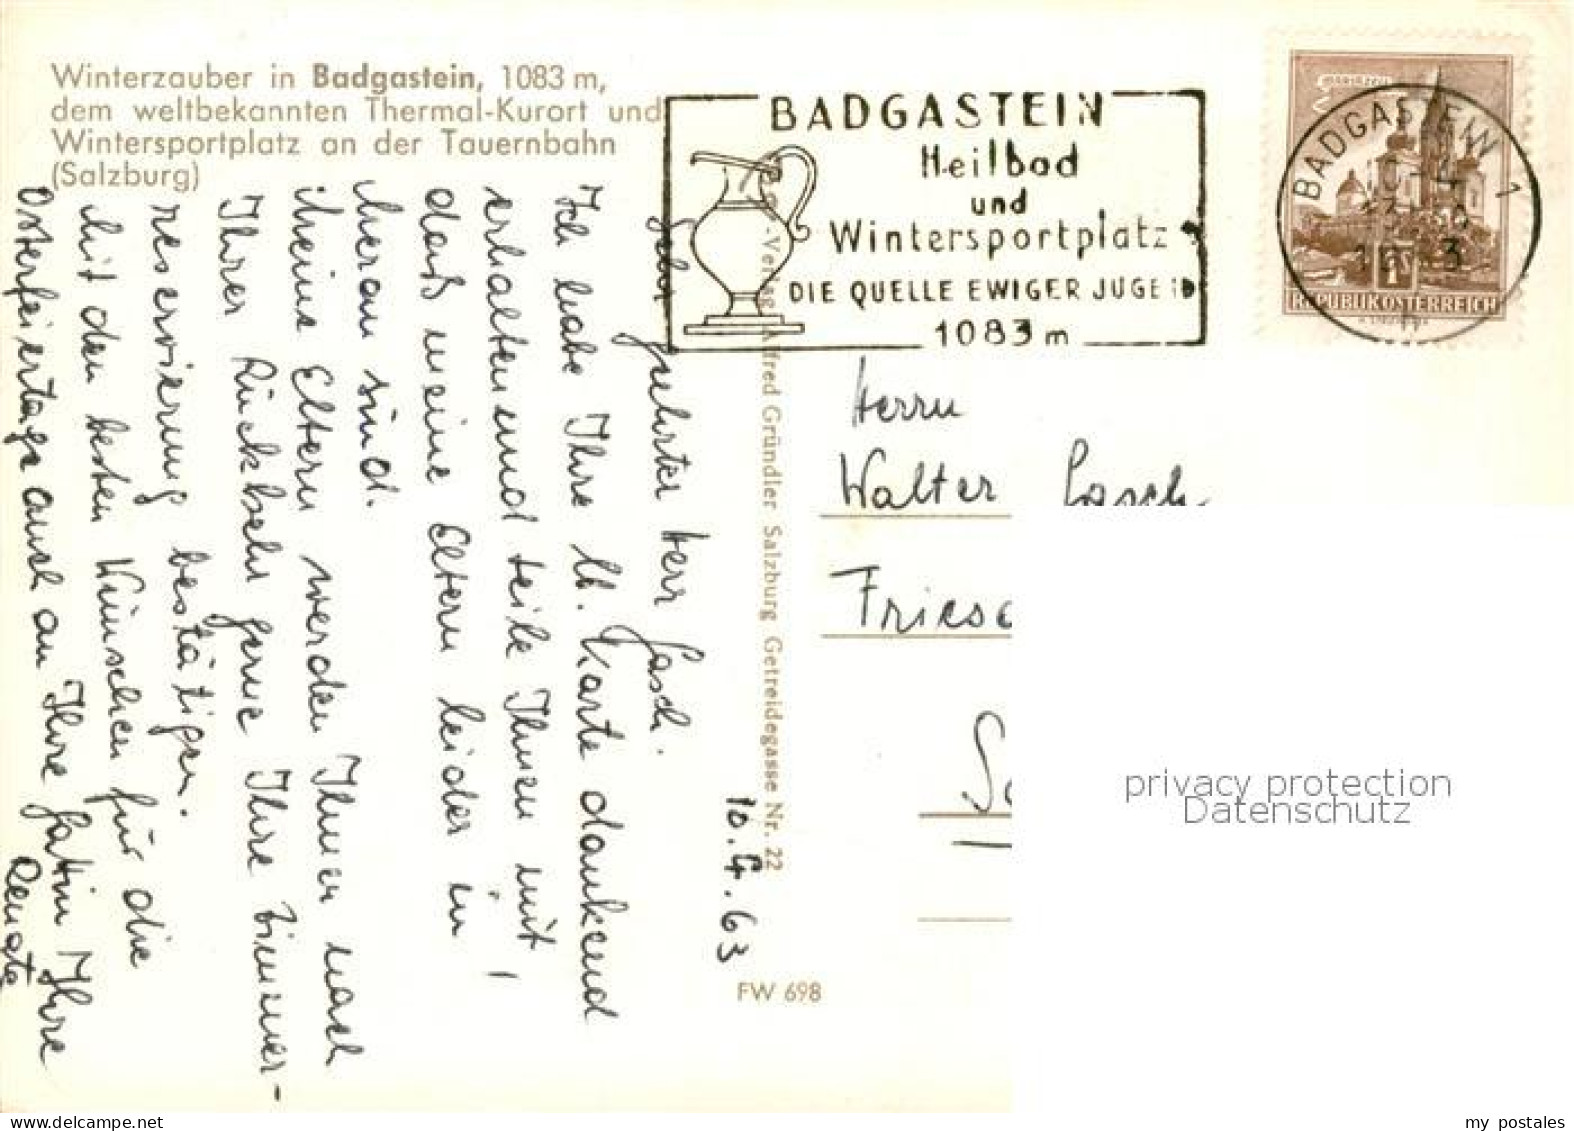 Winterzauber in Badgastein, 1083 m,
dem weltbekannten Thermal-Kurort und
Wintersportplatz an der Tauernbahn
(Salzburg)
BADGASTEIN
Heilbad
und
Wintersportplatz
DIE QUELLE EWIGER JUGEND
1083 m
BADGASTEIN 1
REPUBLIK ÖSTERREICH
10.4.63
Sehr geehrter Herr Lasch.
Ich habe Ihre lb. Karte dankend
erhalten und teile Ihnen mit,
daß meine Eltern leider in
Meran sind.
Meine Eltern werden Ihnen nach
Ihrer Rückkehr gerne Ihre Zimmer-
reservierung bestätigen.
Mit den besten Wünschen für die
Osterfeiertage auch an Ihre Gattin Ihre
Renate
Alfred Gründler Salzburg Getreidegasse Nr. 22
FW 698
Herrn
Walter Lasch
privacy protection
Datenschutz
my postales